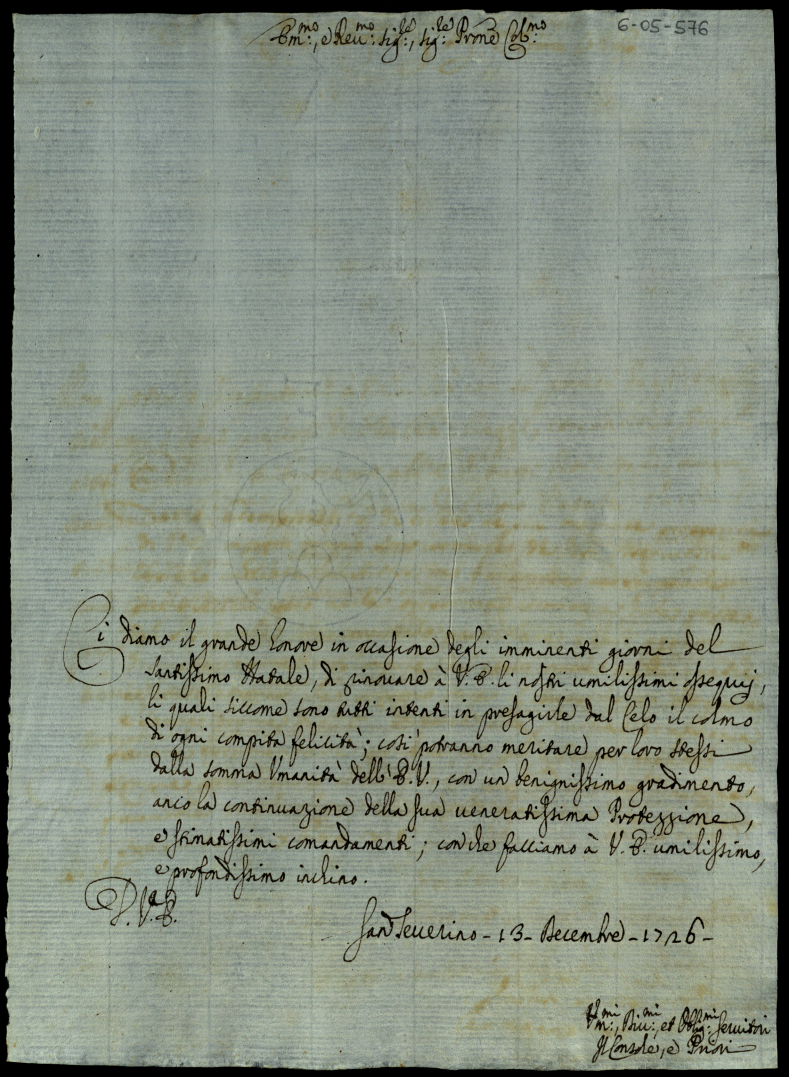 Em:mo, e Reu:mo Sig:re, Sig:re Prone Col:mo
6-05-576
Ci diamo il grande honore in occasione degli imminenti giorni del
Santissimo Natale, di rinouare à V. E. li nostri umilissimi ossequij,
li quali siccome sono tutti intenti in presagirle dal Celo il colmo
di ogni compita felicità; così potranno meritare per loro stessi
dalla somma Vmanità dell'E. V., con un benignissimo gradimento,
anco la continuazione della sua veneratissima Protezzione,
e stimatissimi comandamenti; con che facciamo à V. E. umilissimo,
e profondissimo inchino.
D. V. E.
San Seuerino - 13 - Decembre - 1726 -
Vm:mi, Diu:mi, et Oblig:mi Seruitori
Il Console, e Priori